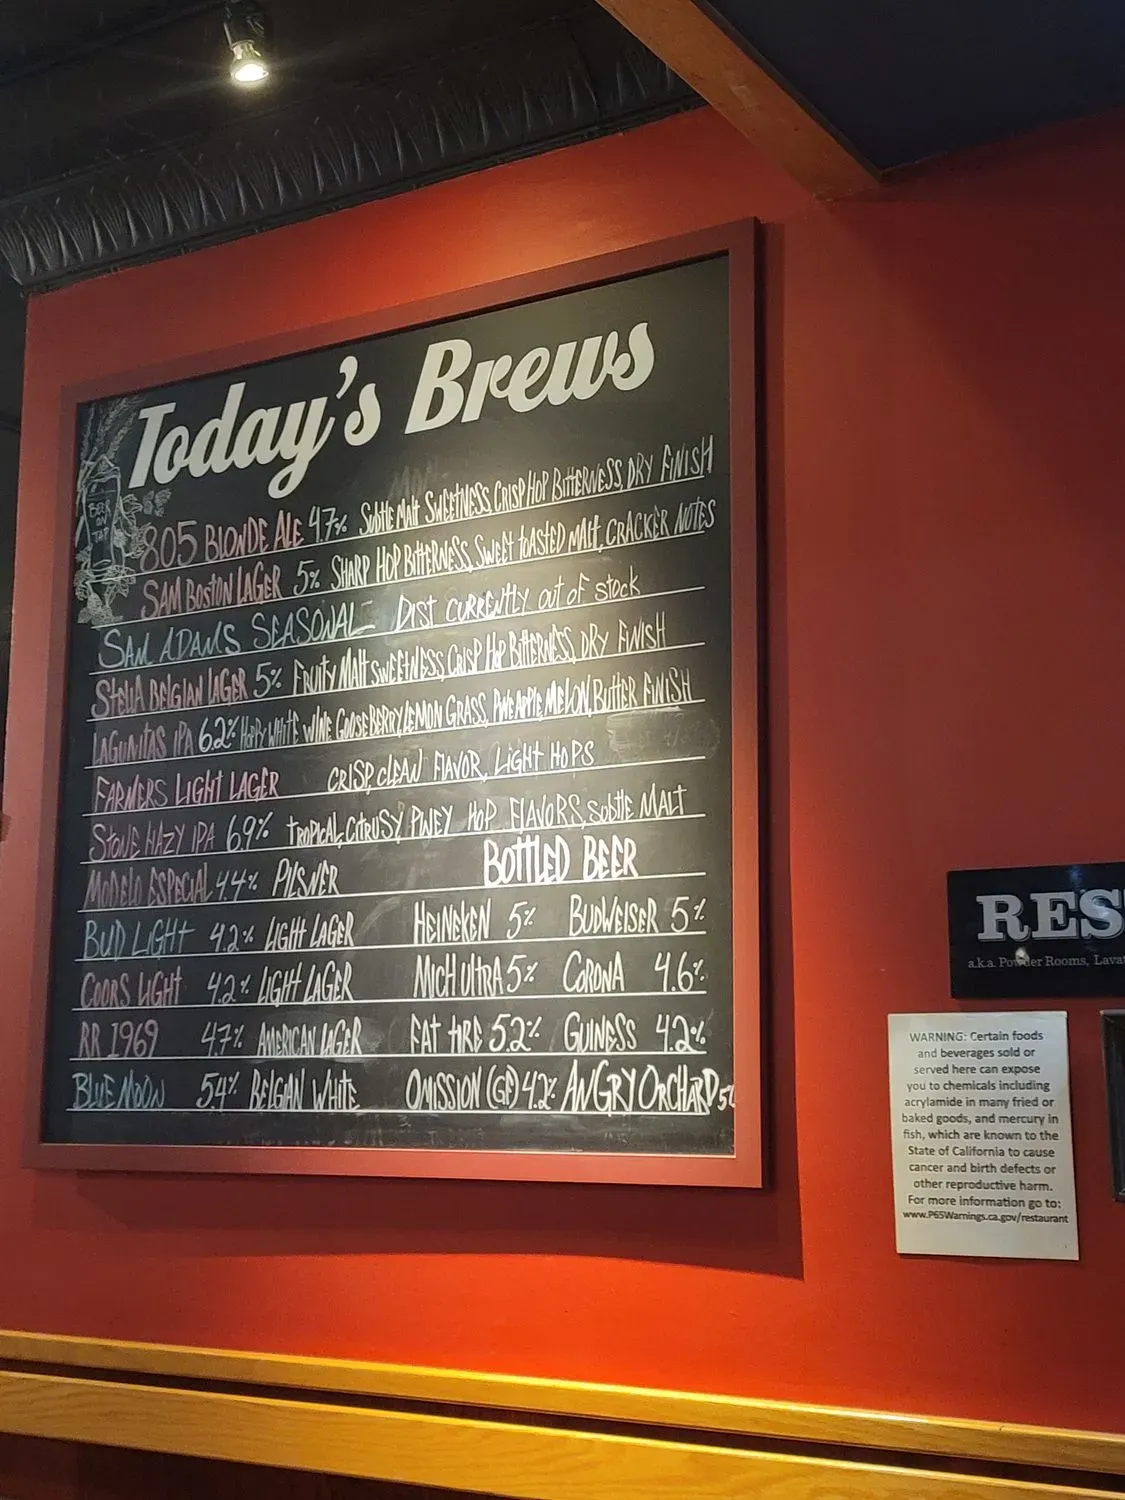 Today's Brews
BEER ON TAP
805 BLONDE ALE 4.7% SUBTLE MALT SWEETNESS, CRISP HOP BITTERNESS, DRY FINISH
SAM BOSTON LAGER 5% SHARP HOP BITTERNESS, SWEET TOASTED MALT, CRACKER NOTES
SAM ADAMS SEASONAL - DIST CURRENTLY OUT OF STOCK
STELLA BELGIAN LAGER 5% FRUITY MALT SWEETNESS, CRISP HOP BITTERNESS, DRY FINISH
LAGUNITAS IPA 6.2% HOPPY WHITE WINE GOOSEBERRY, LEMON GRASS, PINEAPPLE, MELON, BUTTER FINISH
FARMERS LIGHT LAGER CRISP, CLEAN FLAVOR, LIGHT HOPS
STONE HAZY IPA 6.9% TROPICAL, CITRUSY PINEY HOP FLAVORS, SUBTLE MALT
MODELO ESPECIAL 4.4% PILSNER BOTTLED BEER
BUD LIGHT 4.2% LIGHT LAGER HEINEKEN 5% BUDWEISER 5%
COORS LIGHT 4.2% LIGHT LAGER MICH ULTRA 5% CORONA 4.6%
RR 1969 4.7% AMERICAN LAGER FAT TIRE 5.2% GUINESS 4.2%
BLUE MOON 5.4% BELGIAN WHITE OMISSION (GF) 4.2% ANGRY ORCHARD
RES
a.k.a. Powder Rooms, Lava
WARNING: Certain foods
and beverages sold or
served here can expose
you to chemicals including
acrylamide in many fried or
baked goods, and mercury in
fish, which are known to the
State of California to cause
cancer and birth defects or
other reproductive harm.
For more information go to:
www.P65Warnings.ca.gov/restaurant